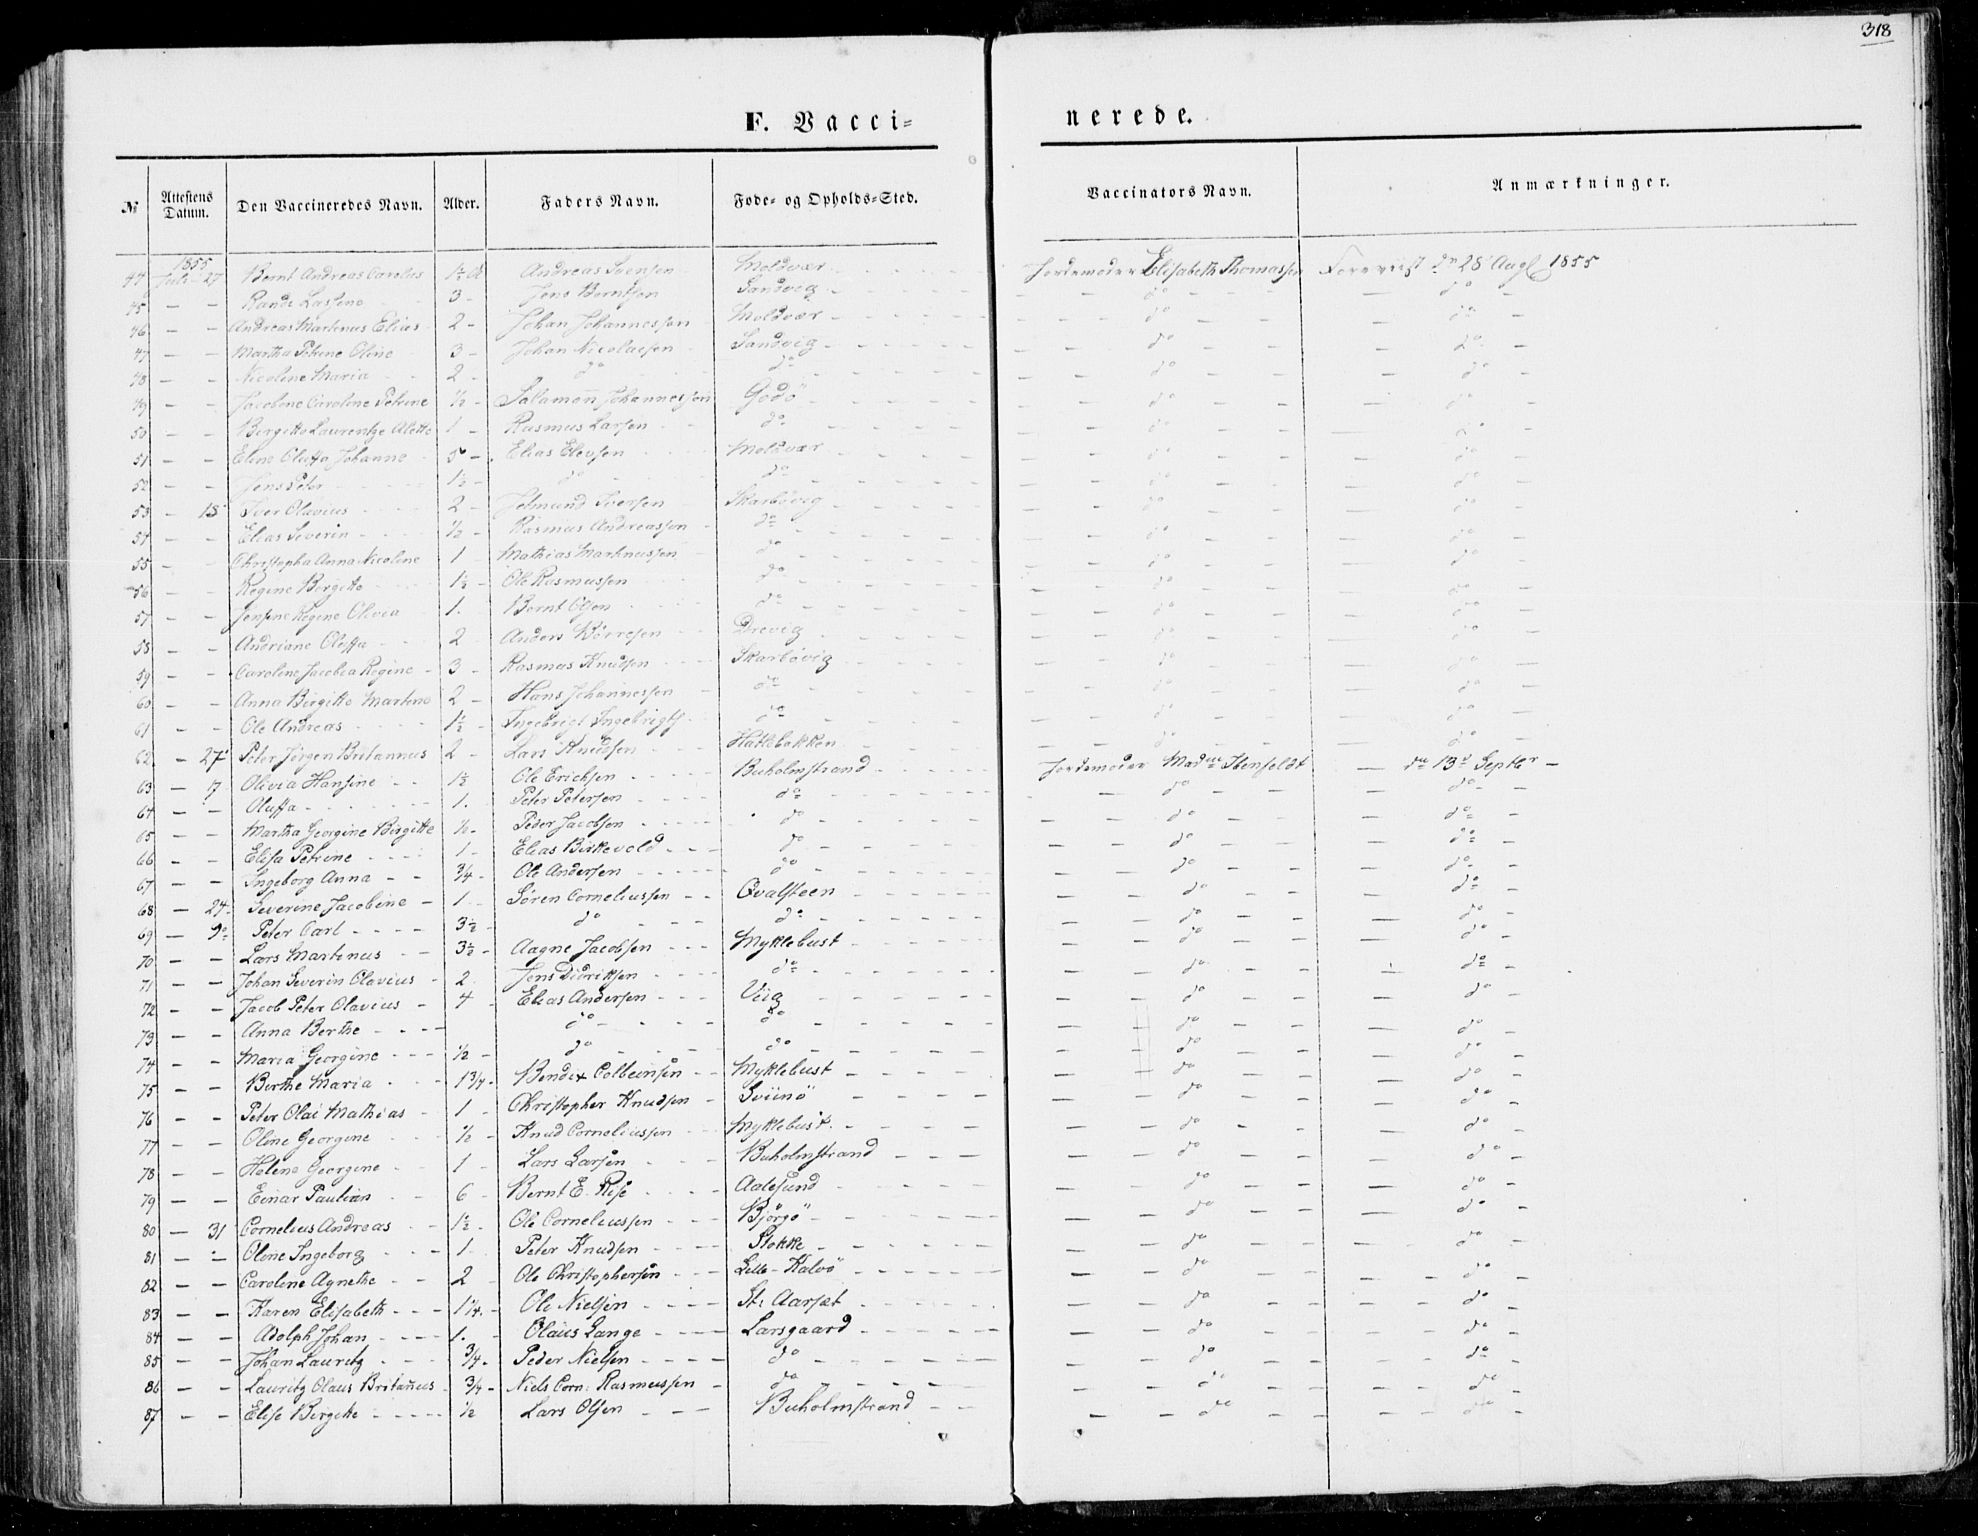 318
F. Vacci=
nerede.
№ Attestens Datum. Den Vaccineredes Navn. Alder. Faders Navn. Føde- og Opholds-Sted. Vaccinators Navn. Anmærkninger.
1855
44 Juli 27 Bernt Andreas Carolus 1½ Andreas Svensen Moldvær Jordemoder Elisabeth Thomassen Foreviist dn 28 Augt 1855
45 — — Lassine 3 - Jens Berntsen Sandvig — do — — do —
46 — — Andreas Martinus Elias 2 - Johan Johannessen Moldvær — do — — do —
47 — — Martha Petrine Oline 3 - Johan Nicolaisen Sandvig — do — — do —
48 — — Nicoline Maria 2 - do do — do — — do —
49 — — Jacobine Caroline Petrine ½ - Salamon Johannessen Godö — do — — do —
50 — — Birgitte Laurentze Alette 1 - Rasmus Larsen do — do — — do —
51 — — Eline Oluffa Johanne 5 - Elias Elevsen Moldvær — do — — do —
52 — — Jens Peter 1½ - do do — do — — do —
53 — 18 Iver Olavius 2 - Jetmund Iversen Skarbövig — do — — do —
54 — — Elias Severin ½ - Rasmus Andreassen do — do — — do —
55 — — Christopha Anna Nicoline 1 Mathias Martinussen do — do — — do —
56 — — Regine Birgitte 1½ - Ole Rasmussen do — do — — do —
57 — — Jensine Regine Olivia 1. Bernt Olsen do — do — — do —
58 — — Andriane Oleffa 2 Anders Körresen Drevig — do — — do —
59 — — Caroline Jacobea Regine 3 - Rasmus Knudsen Skarbövig — do — — do —
60 — — Anna Birgitte Martine 2 - Hans Johannessen do — do — — do —
61 — — Ole Andreas 1½ - Ingebrigt Ingebrigts. do — do — — do —
62 — 27 Peter Jörgen Britannus 2 - Lars Knudsen Hatlebakken — do — — do —
63 — 7 Olivia Hansine 1½ Ole Erichsen Buholmstrand Jordemoder Madme — dn 13d Septbr —
64 — — Oluffa 1. Peter Petersen do — do — — do —
65 — — Martha Georgine Birgitte ½ - Peder Jacobsen do — do — — do —
66 — — Elisa Petrine 1 - Elias Birkevold do — do — — do —
67 — — Ingeborg Anna ¾ - Ole Andersen do — do — — do —
68 — 24 Severine Jacobine 1 Sören Corneliussen Qvalsteen — do — — do —
69 — 9 Peter Carl 3½ - do do — do — — do —
70 — — Lars Martinus 3½ - Aagne Jacobsen Myklebust — do — — do —
71 — — Johan Severin Olavius 2 Jens Didriksen do — do — — do —
72 — — Jacob Peter Olavius 4 Elias Andersen Viig — do — — do —
73 — — Anna Berthe do do — do — — do —
74 — — Maria Georgine ½ - do do — do — — do —
75 — — Berthe Maria 1¾ - Bendix Colbeinsen Myklebust — do — — do —
76 — — Peter Olai Mathias 1 - Christopher Knudsen Sviinö — do — — do —
77 — — Oline Georgine ½ - Knud Corneliussen Myklebust — do — — do —
78 — — Helene Georgine 1 - Lars Larsen Buholmstrand — do — — do —
79 — — Einar Paulian 6 - Bernt E. Rise Aalesund — do — — do —
80 — 31 Cornelius Andreas 1½ - Ole Corneliussen Björgö — do — — do —
81 — — Oline Ingeborg 1 Peter Knudsen Stokke — do — — do —
82 — — Caroline Agnethe 2 Ole Christophersen Lille-Kalvö — do — — do —
83 — — Karen Elisabeth 1¼ - Ole Nielsen St: Aarset — do — — do —
84 — — Adolph Johan 1. Olaus Lange Larsgaard — do — — do —
85 — — Johan Lauritz ¾ - Peder Nielsen do — do — — do —
86 — — Lauritz Olaus Britannus ¾ - Niels Corn: Rasmussen do — do — — do —
87 — — Elise Birgitte ½ Lars Olsen Buholmstrand — do — — do —